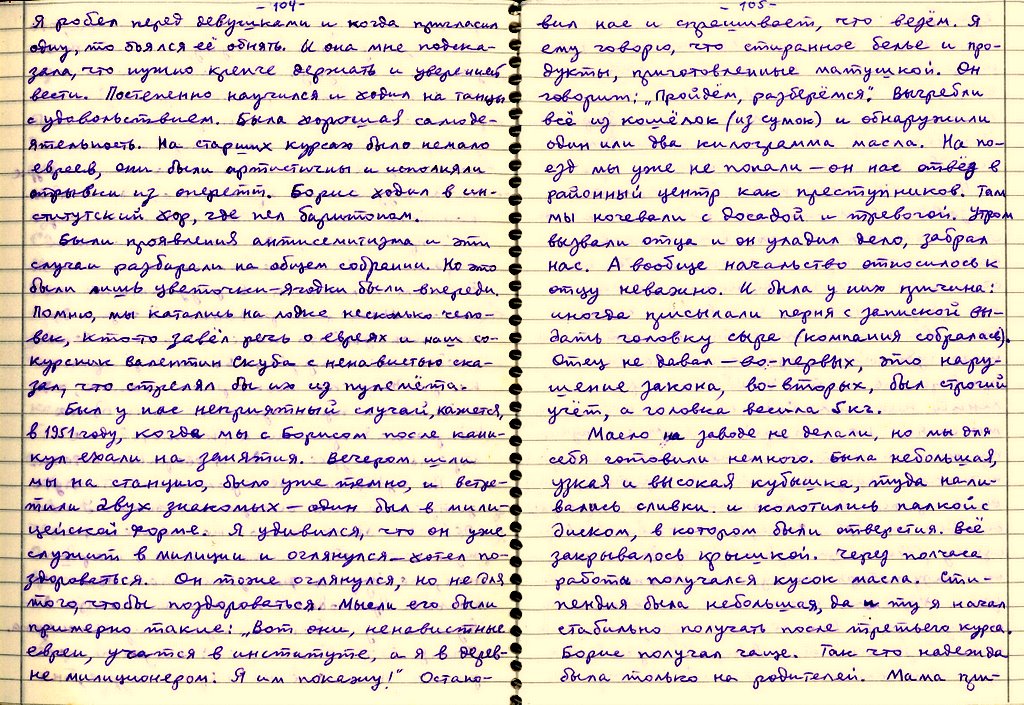 - 104 -
Я робел перед девушками и когда пригласил
одну, то боялся её обнять. И она мне подска-
зала, что нужно крепче держать и уверенней
вести. Постепенно научился и ходил на танцы
с удовольствием. Была хорошая самоде-
ятельность. На старших курсах было немало
евреев, они были артистичны и исполняли
отрывки из оперетт. Борис ходил в ин-
ститутский хор, где пел баритоном.
Были проявления антисемитизма и эти
случаи разбирали на общем собрании. Но это
были лишь цветочки-ягодки были впереди.
Помню, мы катались на лодке несколько чело-
век, кто-то завёл речь о евреях и наш со-
курсник Валентин Скуба с ненавистью ска-
зал, что стрелял бы их из пулемёта.
Был у нас неприятный случай, кажется,
в 1951 году, когда мы с Борисом после кани-
кул ехали на занятия. Вечером шли
мы на станцию, было уже темно, и встре-
тили двух знакомых – один был в мили-
цейской форме. Я удивился, что он уже
служит в милиции и оглянулся – хотел по-
здороваться. Он тоже оглянулся, но не для
того, чтобы поздороваться. Мысли его были
примерно такие: „Вот они, ненавистные
евреи, учатся в институте, а я в дерев-
не милиционером. Я им покажу!" Остано-
- 105 -
вил нас и спрашивает, что везём. Я
ему говорю, что стиранное белье и про-
дукты, приготовленные матушкой. Он
говорит: „Пройдём, разберёмся". Выгребли
всё из кошёлок (из сумок) и обнаружили
один или два килограмма масла. На по-
езд мы уже не попали – он нас отвёз в
районный центр как преступников. Там
мы ночевали с досадой и тревогой. Утром
вызвали отца и он уладил дело, забрал
нас. А вообще начальство относилось к
отцу неважно. И была у них причина:
иногда присылали парня с запиской вы-
дать головку сыра (компания собралась).
Отец не давал – во-первых, это нару-
шение закона, во-вторых, был строгий
учёт, а головка весила 5 кг.
Масло на заводе не делали, но мы для
себя готовили немного. Была небольшая,
узкая и высокая кубышка, туда нали-
вались сливки и колотились палкой с
диском, в котором были отверстия. Всё
закрывалось крышкой. Через полчаса
работы получался кусок масла. Сти-
пендия была небольшая, да и ту я начал
стабильно получать после третьего курса.
Борис получал чаще. Так что надежда
была только на родителей. Мама при-